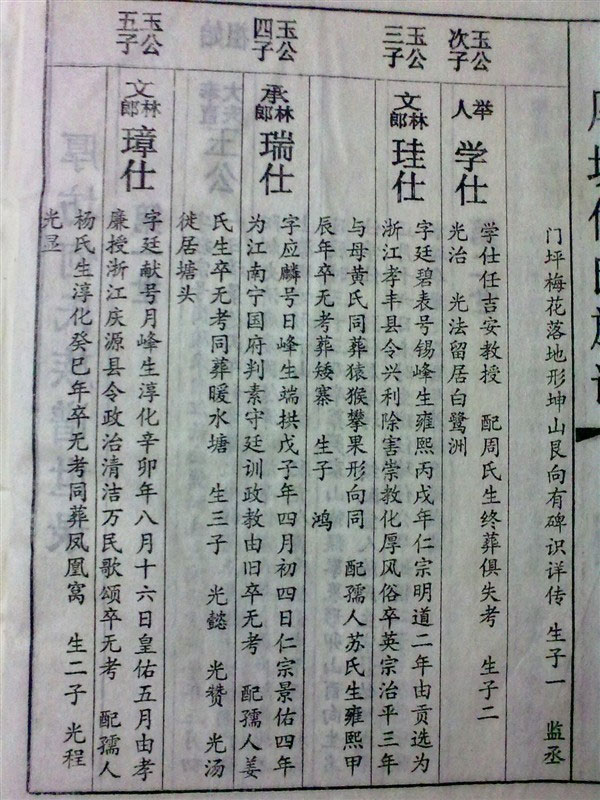 门坪梅花落地形坤山艮向有碑识详传　生子一　监丞
玉公
次子
举人
学仕
学仕任吉安教授　配周氏生终葬俱失考　生子二
光治　光法留居白鹭洲
玉公
三子
文林郎
珪仕
字廷碧表号锡峰生雍熙丙戌年仁宗明道二年由贡选为
浙江孝丰县令兴利除害崇教化厚风俗卒英宗治平三年
与母黄氏同葬猿猴攀果形向同　配孺人苏氏生雍熙甲
辰年卒无考葬矮寨　生子　鸿
玉公
四子
承林郎
瑞仕
字应麟号日峰生端拱戊子年四月初四日仁宗景佑四年
为江南宁国府判素守廷训政教由旧卒无考　配孺人姜
氏生卒无考同葬暖水塘　生三子　光懿　光赞　光汤
徙居塘头
玉公
五子
文林郎
璋仕
字廷献号月峰生淳化辛卯年八月十六日皇佑五月由孝
廉授浙江庆源县令政治清洁万民歌颂卒无考　配孺人
杨氏生淳化癸巳年卒无考同葬凤凰窝　生二子　光程
光显